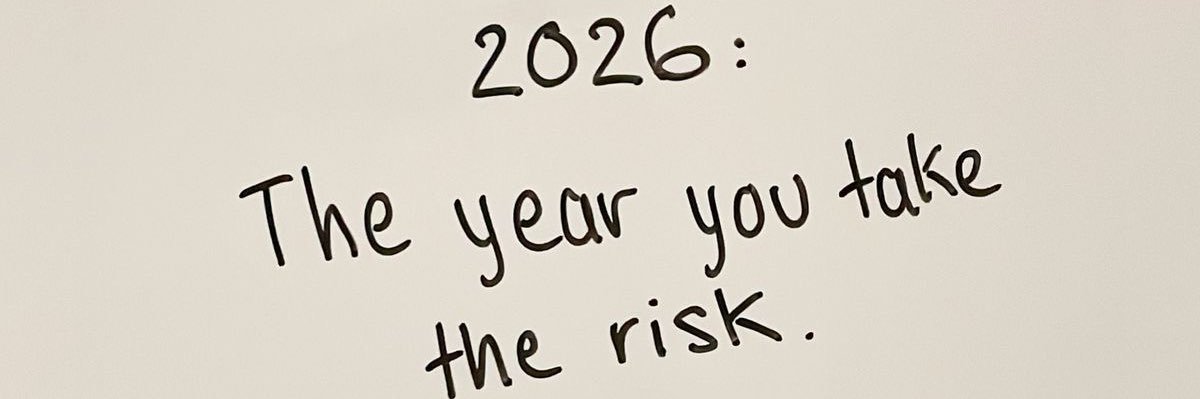 2026:
The year you take
the risk.